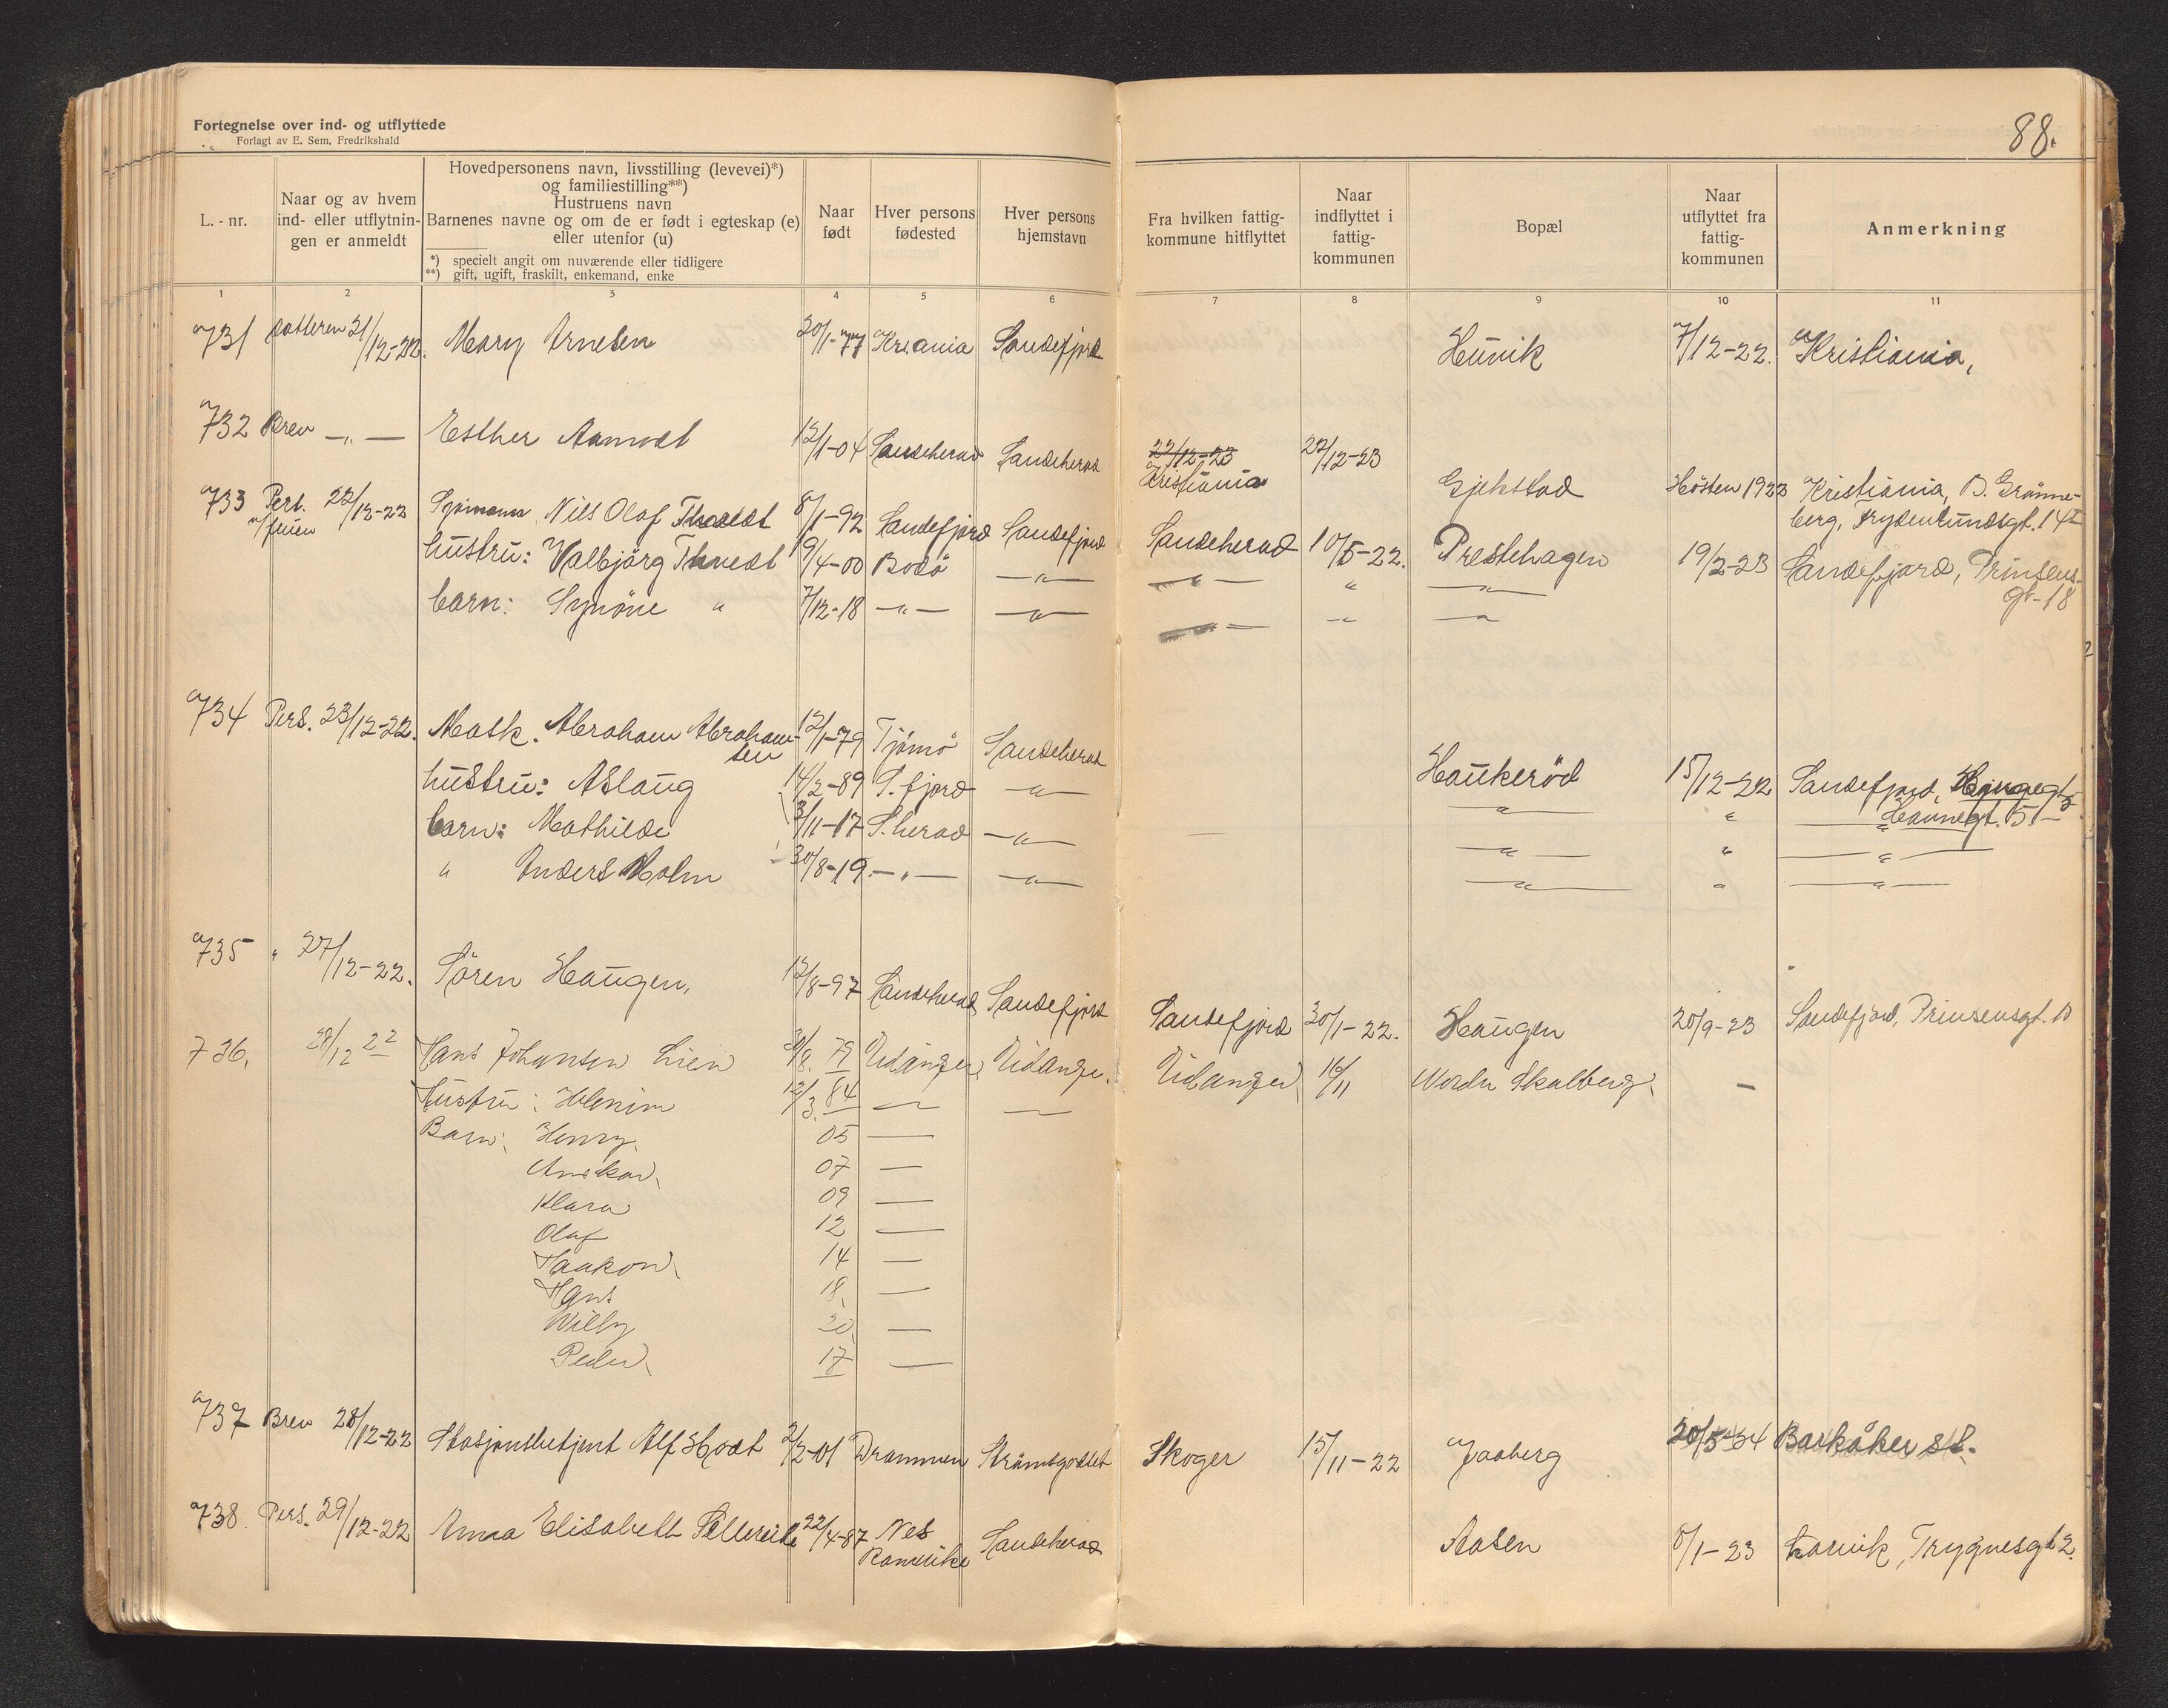 Fortegnelse over ind- og utflyttede
Forlagt av E. Sem, Fredrikshald
88.
L. - nr.
Naar og av hvem
ind- eller utflytnin-
gen er anmeldt
Hovedpersonens navn, livsstilling (levevei)*)
og familiestilling**)
Hustruens navn
Barnenes navne og om de er født i egteskap (e)
eller utenfor (u)
*) specielt angit om nuværende eller tidligere
**) gift, ugift, fraskilt, enkemand, enke
Naar
født
Hver persons
fødested
Hver persons
hjemstavn
Fra hvilken fattig-
kommune hitflyttet
Naar
indflyttet i
fattig-
kommunen
Bopæl
Naar
utflyttet fra
fattig-
kommunen
Anmerkning
1 2 3 4 5 6 7 8 9 10 11
731 datteren 21/12-22. Mary Arnesen 20/1-77 Kr.ania Sandefjord Hunik 7/12-22. Kristiania,
732 Brev —„— Esther Aamodt 12/1-04 Sandeherad Sandeherad 22/12-23 Kristiania 22/12-23 Gjekstad Høsten 1923 Kristiania, B. Grønne-
berg, Frydenlundsgt. 14 I
733 Pers. v/fruen 22/12-22 Sjømann Nils Olaf 8/1-92 Sandefjord Sandefjord Sandeherad 10/5-22. Prestehagen 19/2-23 Sandefjord, Prinsens-
gt-18
hustru: Valbjørg 9/4-00 Bodø —„— —„— „ —„—
barn: Synøve „ 7/12-18 —„— —„— —„— —„— —„—
734 Pers. 23/12-22. Mask. Abraham Abraham-
sen 12/1-79 Tjømø Sandeherad Haukerød 15/12-22 Sandefjord, Bjergegt 5
hustru: Aslaug 14/2-89 S.fjord —„— —„— „ —„— gt. 5
barn: Mathilde 3/11-17 S.herad —„— —„— „ —„—
„ Anders Holm 30/8-19 —„— —„— —„— „ —„—
735 „ 27/12-22. Søren Haugen, 12/8-97 Sandeherad Sandefjord Sandefjord 30/1-22. Haugen 20/9-23 Sandefjord, Prinsensgt. 10
736, 28/12 22 Hans Johansen Lien /8. 79 Eidanger Eidange. Eidanger 16/11 Nordre Skalberg —
Hustru: 12/3. 84 — —
Barn: Henry. 05 —
Anskar 07 —
Klara 09 —
Olaf 12 —
Haakon 14 —
Hans 18, —
Willy 20 —
Peder 17 —
737 Brev 28/12-22 Stasjonsbetjent Alf Hodt 2/2-01 Drammen Strømsgodset Skoger 15/11-22 Jaaberg 20/5-34 Barkåker st.
738 Pers. 29/12-22 Anna Elisabeth 22/4-87 Nes
Romerike Sandeherad Aasen 8/1-23 Larvik, Trygvesgt 2.